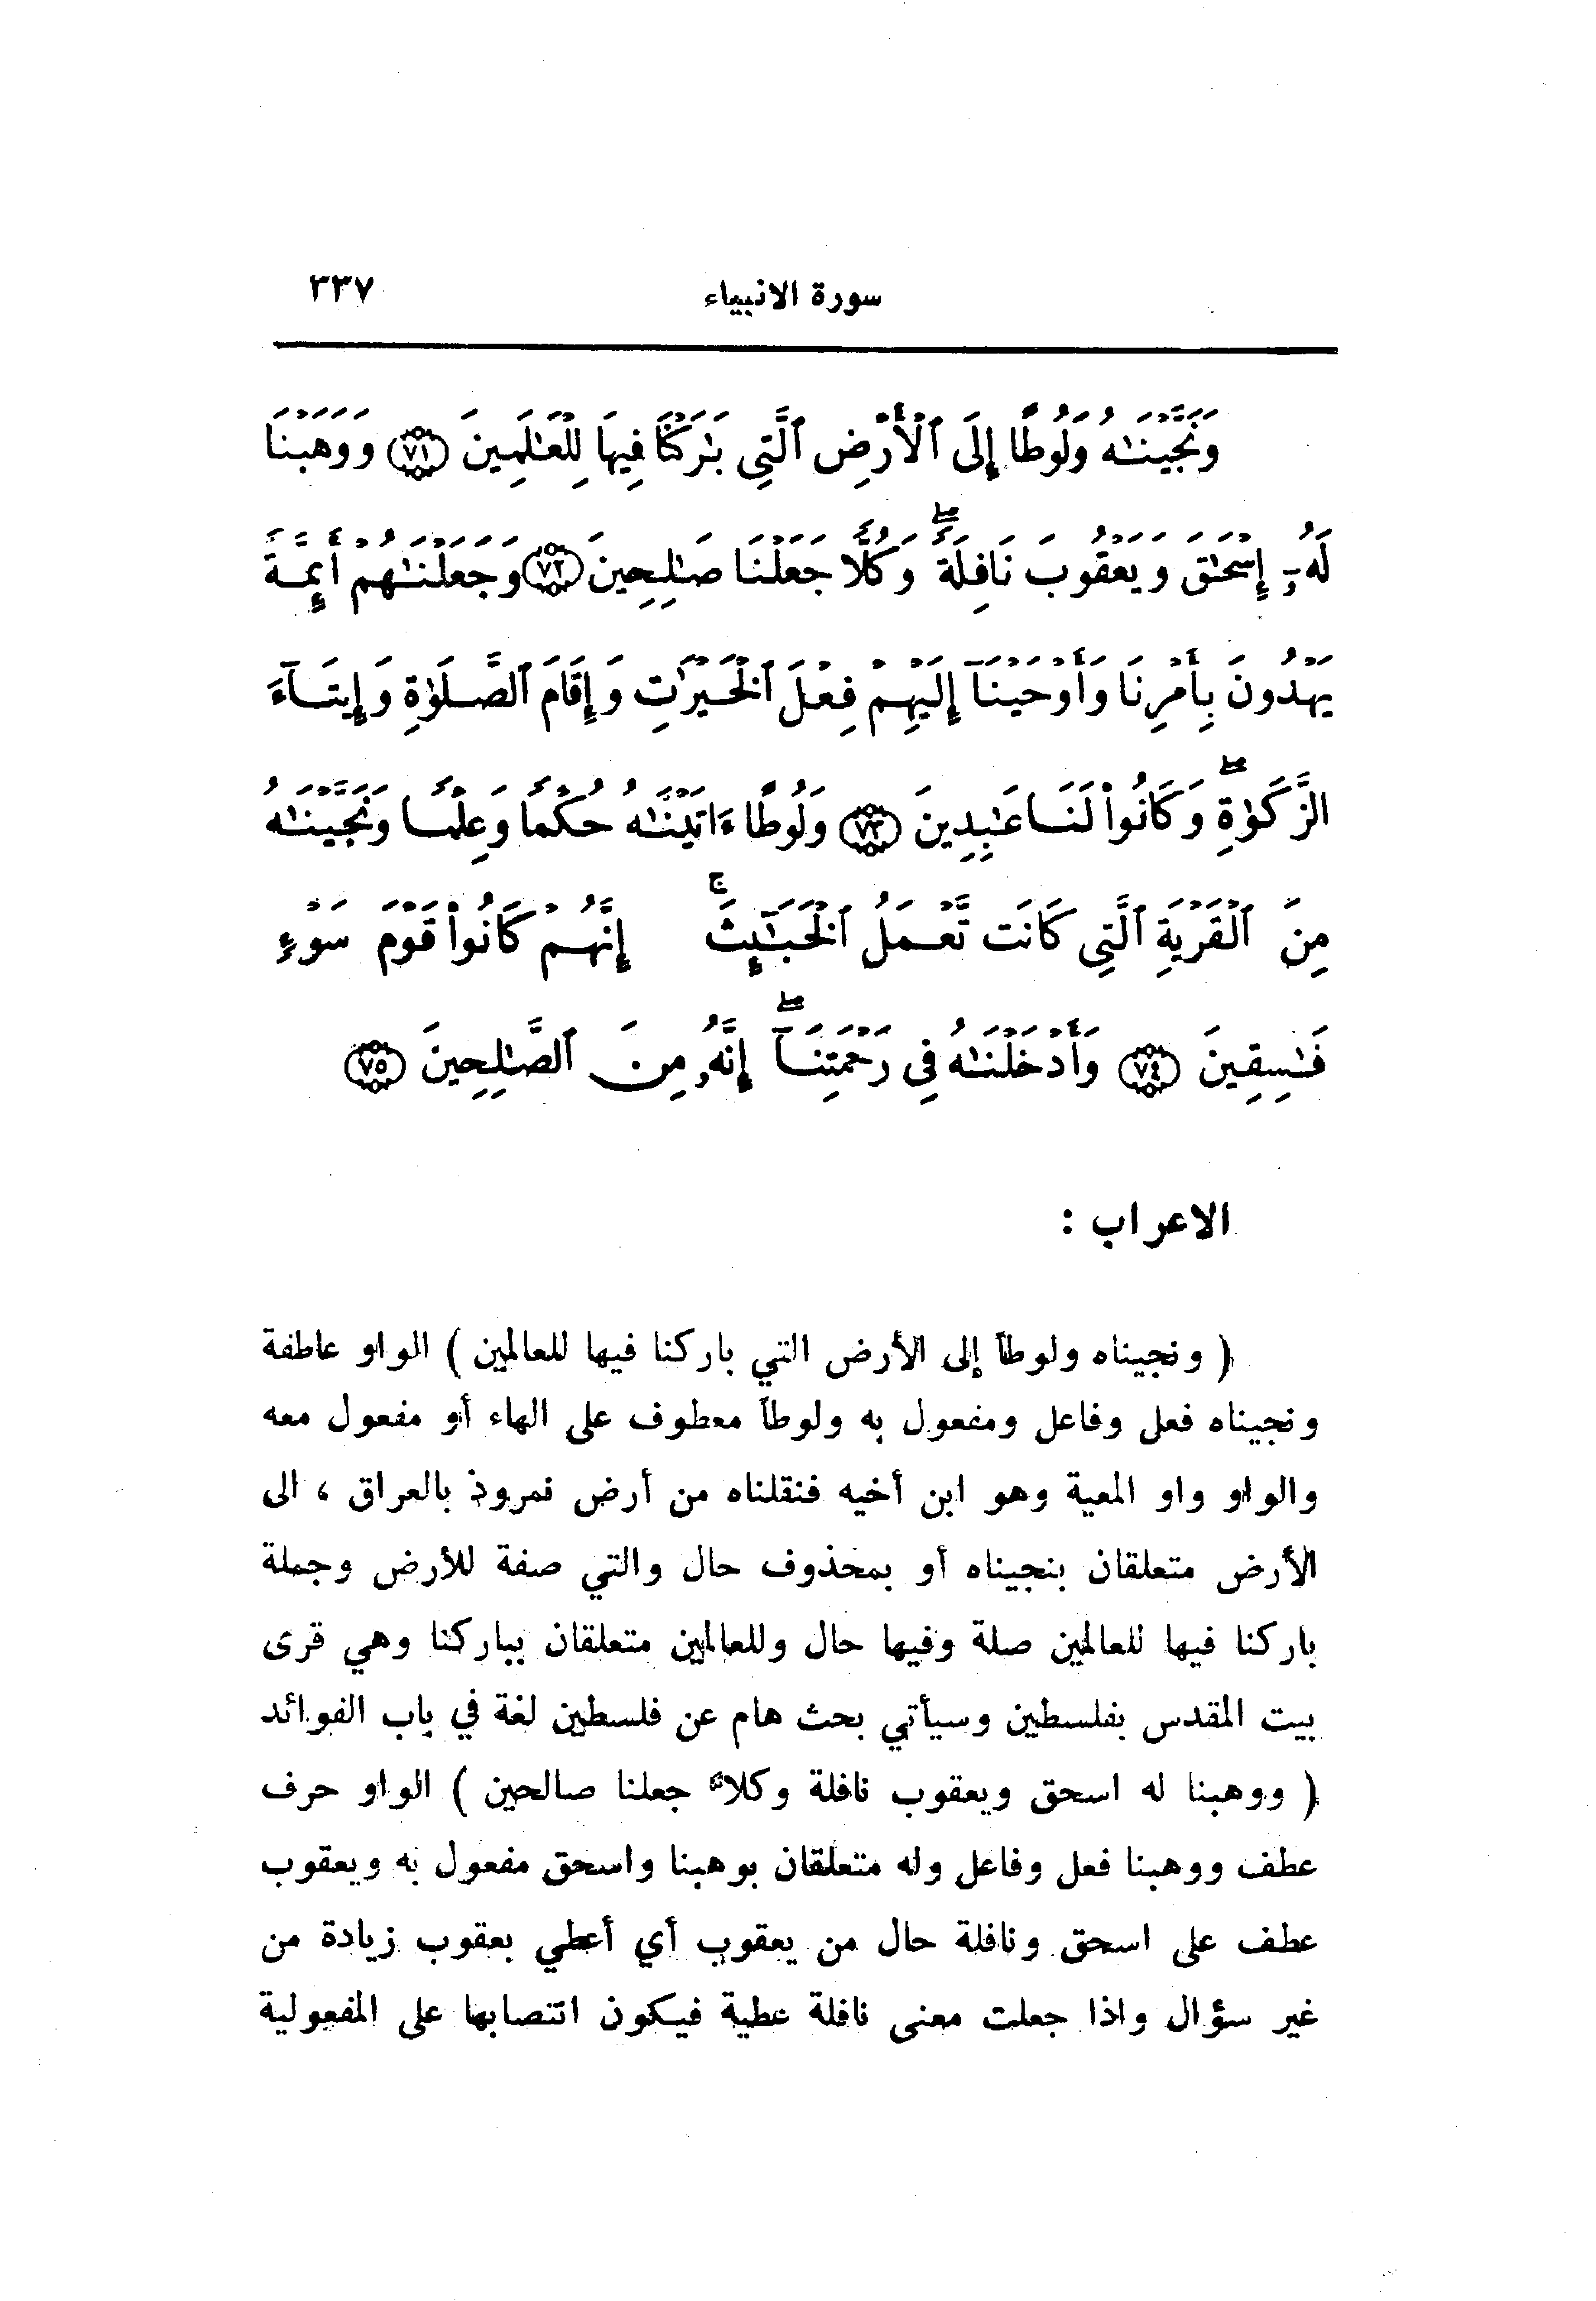 سورة الانبياء ٣٣٧
وَنَجَّيْنَٰهُ وَلُوطًا إِلَى ٱلْأَرْضِ ٱلَّتِى بَٰرَكْنَا فِيهَا لِلْعَٰلَمِينَ ٧١ وَوَهَبْنَا
لَهُۥٓ إِسْحَٰقَ وَيَعْقُوبَ نَافِلَةً ۖ وَكُلًّا جَعَلْنَا صَٰلِحِينَ ٧٢ وَجَعَلْنَٰهُمْ أَئِمَّةً
يَهْدُونَ بِأَمْرِنَا وَأَوْحَيْنَآ إِلَيْهِمْ فِعْلَ ٱلْخَيْرَٰتِ وَإِقَامَ ٱلصَّلَوٰةِ وَإِيتَآءَ
ٱلزَّكَوٰةِ ۖ وَكَانُوا۟ لَنَا عَٰبِدِينَ ٧٣ وَلُوطًا ءَاتَيْنَٰهُ حُكْمًا وَعِلْمًا وَنَجَّيْنَٰهُ
مِنَ ٱلْقَرْيَةِ ٱلَّتِى كَانَت تَّعْمَلُ ٱلْخَبَٰٓئِثَ ۚ إِنَّهُمْ كَانُوا۟ قَوْمَ سَوْءٍ
فَٰسِقِينَ ٧٤ وَأَدْخَلْنَٰهُ فِى رَحْمَتِنَآ ۖ إِنَّهُۥ مِنَ ٱلصَّٰلِحِينَ ٧٥
الاعراب :
( ونجيناه ولوطاً إلى الأرض التي باركنا فيها للعالمين ) الواو عاطفة
ونجيناه فعل وفاعل ومفعول به ولوطاً معطوف على الهاء أو مفعول معه
والواو واو المعية وهو ابن أخيه فنقلناه من أرض نمروذ بالعراق ، الى
الأرض متعلقان بنجيناه أو بمحذوف حال والتي صفة للأرض وجملة
باركنا فيها للعالمين صلة وفيها حال وللعالمين متعلقان بباركنا وهي قرى
بيت المقدس بفلسطين وسيأتي بحث هام عن فلسطين لغة في باب الفوائد
( ووهبنا له اسحق ويعقوب نافلة وكلاً جعلنا صالحين ) الواو حرف
عطف ووهبنا فعل وفاعل وله متعلقان بوهبنا واسحق مفعول به ويعقوب
عطف على اسحق ونافلة حال من يعقوب أي أعطي يعقوب زيادة من
غير سؤال واذا جعلت معنى نافلة عطية فيكون انتصابها على المفعولية